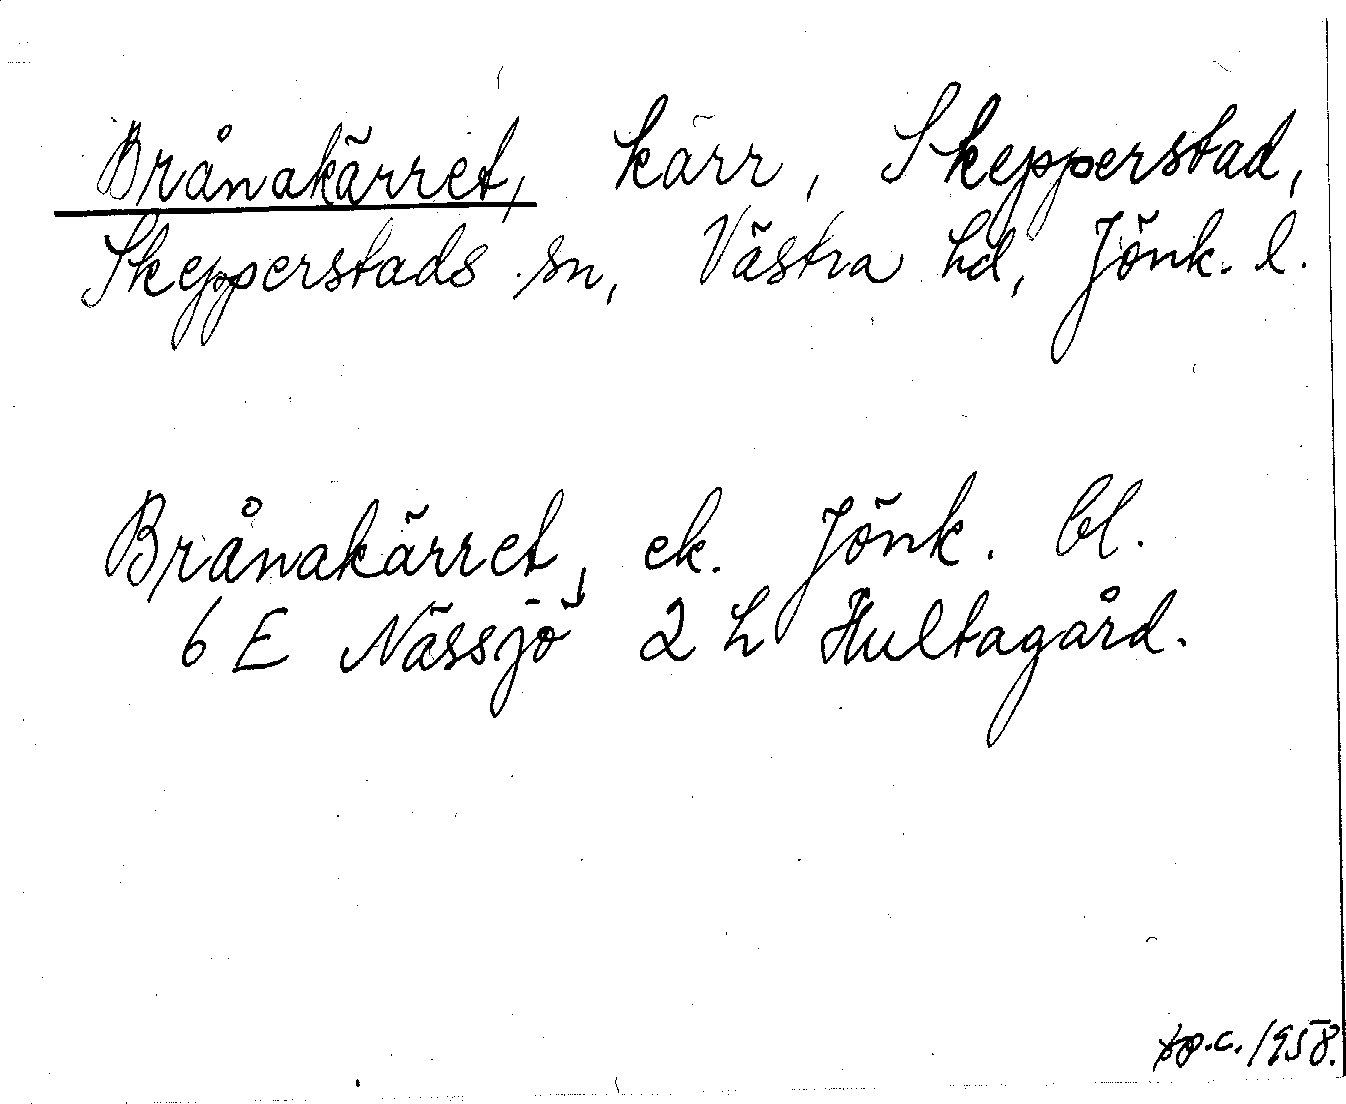 Brånakärret, kärr, Skepperstad,
Skepperstads sn, Västra hd, Jönk. l.
Brånakärret, ek. Jönk. bl.
6 E Nässjö 2 h Hultagård.
1958.